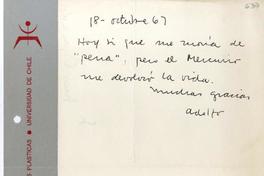 18 - octubre 67
637
Hoy si que me moría de
"pena"; pero el Mercurio
me devolvió la vida.
muchas gracias
adolfo
S PLASTICAS - UNIVERSIDAD DE CHILE